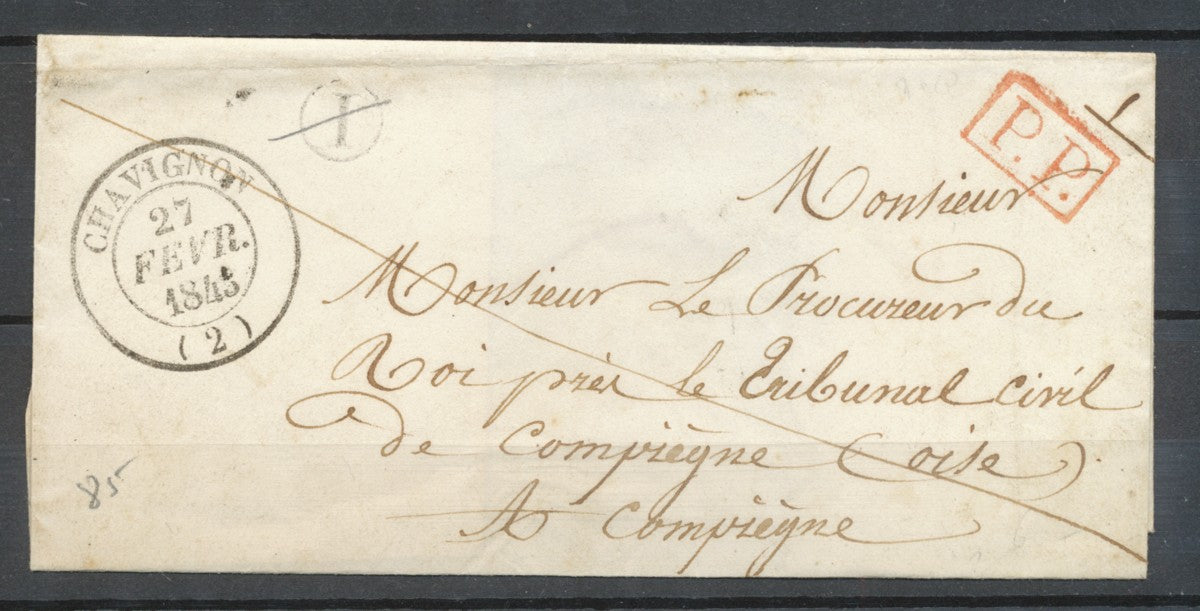 I
P.P.
CHAVIGNON
27
FEVR.
1845
(2)
Monsieur
Monsieur Le Procureur du
Roi près le Tribunal civil
de Compiègne (oise)
A Compiègne
85